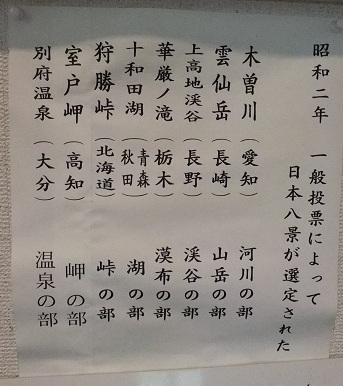 昭和二年 一般投票によって
日本八景が選定された
木曽川（愛知）河川の部
雲仙岳（長崎）山岳の部
上高地渓谷（長野）渓谷の部
華厳ノ滝（栃木）漠布の部
十和田湖（青森秋田）湖の部
狩勝峠（北海道）峠の部
室戸岬（高知）岬の部
別府温泉（大分）温泉の部